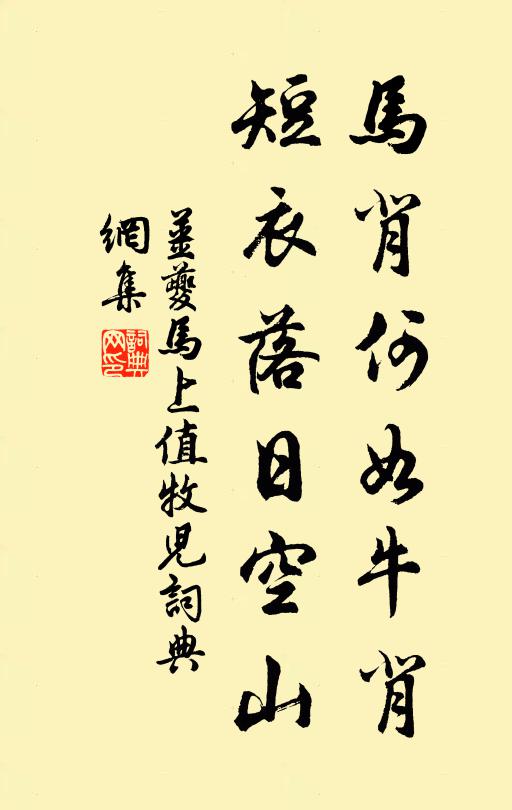 馬背何如牛背
短衣落日空山
姜夔馬上值牧兒詞典
網集
詞典
网印